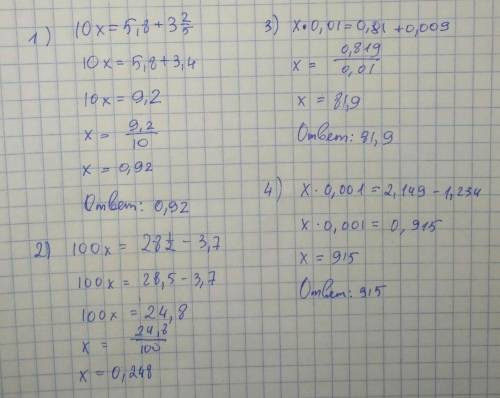 1) 10x = 5,8 + 3 2/5
10x = 5,8 + 3,4
10x = 9,2
x = 9,2/10
x = 0,92
Ответ: 0,92
2) 100x = 28 1/2 - 3,7
100x = 28,5 - 3,7
100x = 24,8
x = 24,8/100
x = 0,248
3) x · 0,01 = 0,81 + 0,009
x = 0,819/0,01
x = 81,9
Ответ: 81,9
4) x · 0,001 = 2,149 - 1,234
x · 0,001 = 0,915
x = 915
Ответ: 915